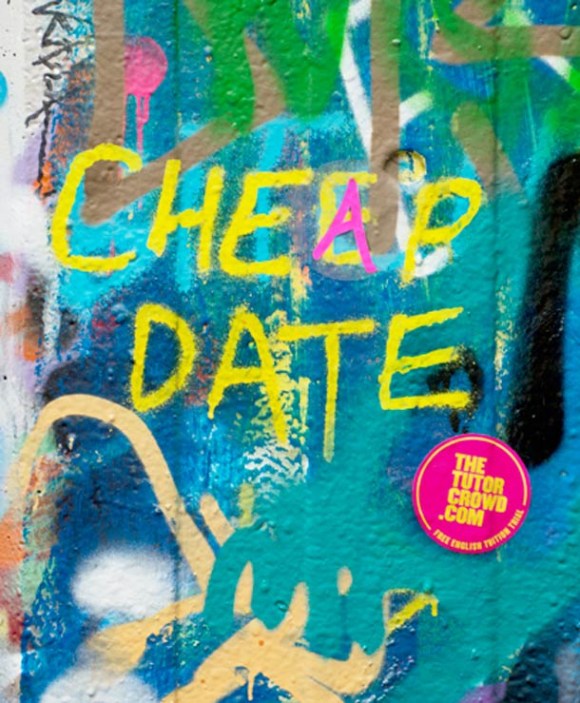 CHEAP
DATE
THE
TUTOR
CROWD
.COM
FREE ENGLISH TUITION TRIAL